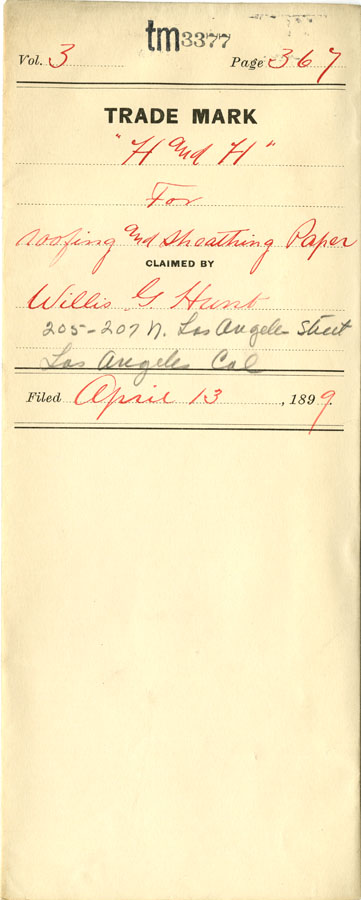 tm3377
Vol. 3 Page 367
TRADE MARK
"H and H"
For
roofing and sheathing Paper
CLAIMED BY
Willis G Hunt
205-207 N. Los Angeles Street
Los Angeles Cal
Filed April 13, 1899.